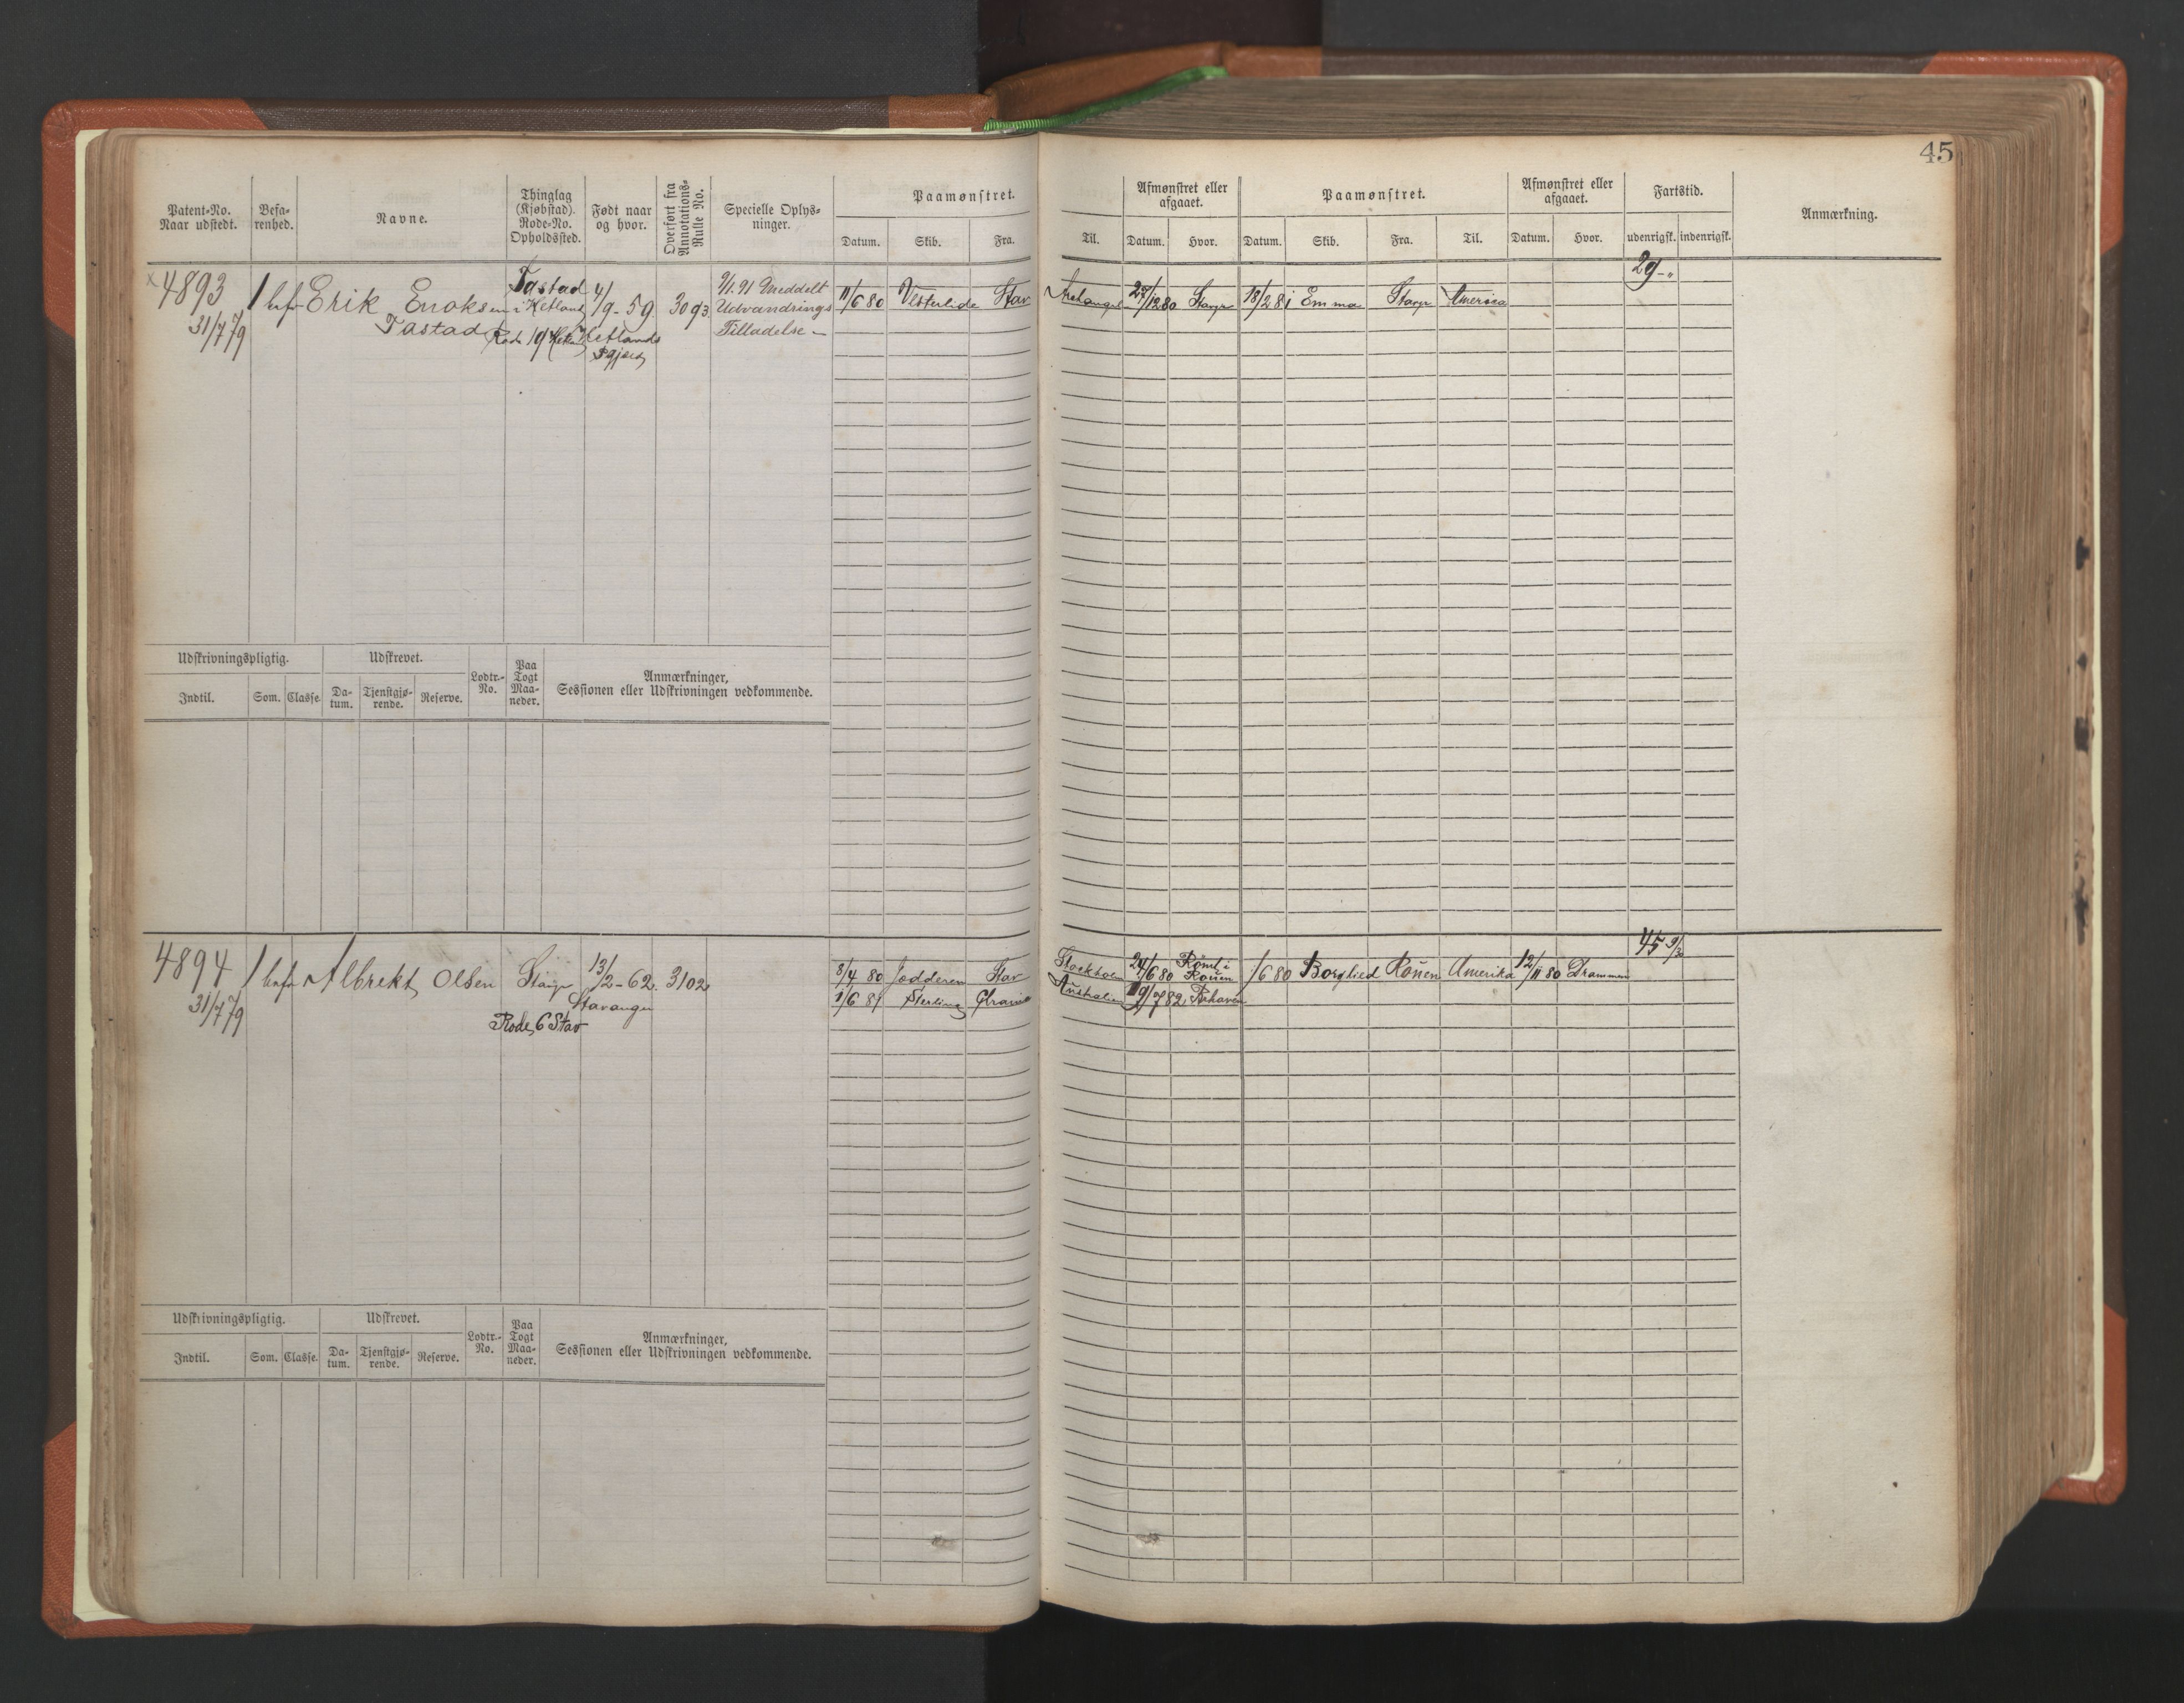 45
Patent-No. Naar udstedt.
Befarenhed.
Navne.
Thinglag (Kjøbstad). Rode-No. Opholdssted.
Født naar og hvor.
Overført fra Annotations-Rulle No.
Specielle Oplysninger.
Paamønstret.
Datum. Skib. Fra. Til.
Afmønstret eller afgaaet.
Datum. Hvor.
Paamønstret.
Datum. Skib. Fra. Til.
Afmønstret eller afgaaet.
Datum. Hvor.
Fartstid.
udenrigsk. indenrigsk.
Anmærkning.
4893 1 bef Erik Enoksen Tastad i Hetland 4/9-59 3093 9/1.91 Meddelt 11/6 80 Vesterlide Stav Archangel 27/12 80 Stavgr 18/2 81 Emma Stavgr America 29-"
31/7 79 Tastad Rode 19 Hetlands Udvandrings
Pgjæld Tilladelse
Udskrivningspligtig. Udskrevet. Lodtr.-No. Paa Togt Maaneder. Anmærkninger, Sessionen eller Udskrivningen vedkommende.
Indtil. Som. Classe. Datum. Tjenstgjørende. Reserve.
4894 1 bef Albrekt Olsen Stavgr 13/2-62 3102 8/4 80 Jædderen Stav Stockholm 24/6 80 Rømt i Rouen /6 80 Borglied Rouen Amerika 12/11 80 Drammen 45 9/30
31/7 79 Stavanger 1/6 81 Sterling Australien 19/7 82
Rode 6 Stav
Udskrivningspligtig. Udskrevet. Lodtr.-No. Paa Togt Maaneder. Anmærkninger, Sessionen eller Udskrivningen vedkommende.
Indtil. Som. Classe. Datum. Tjenstgjørende. Reserve.